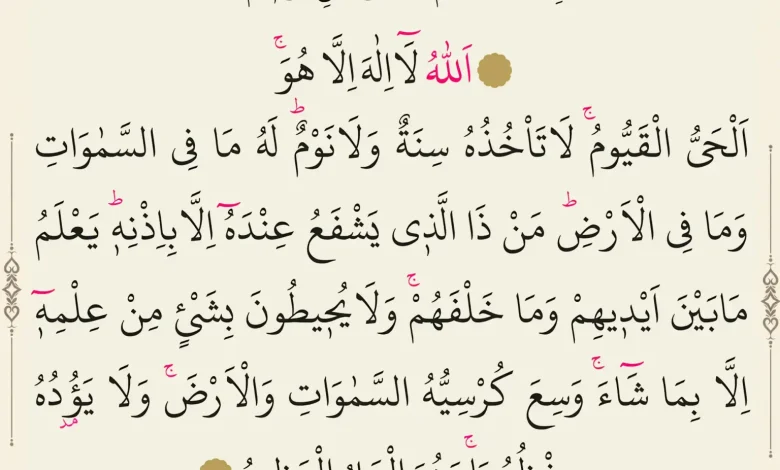 اَللّٰهُ لَٓا اِلٰهَ اِلَّا هُوَۚ
اَلْحَىُّ الْقَيُّومُۚ لَا تَاْخُذُهُ سِنَةٌ وَلَا نَوْمٌۜ لَهُ مَا فِى السَّمٰوَاتِ
وَمَا فِى الْاَرْضِۜ مَنْ ذَا الَّذٖى يَشْفَعُ عِنْدَهُٓ اِلَّا بِاِذْنِهٖۜ يَعْلَمُ
مَابَيْنَ اَيْدٖيهِمْ وَمَا خَلْفَهُمْۚ وَلَا يُحٖيطُونَ بِشَىْءٍ مِنْ عِلْمِهٖٓ
اِلَّا بِمَا شَٓاءَۚ وَسِعَ كُرْسِيُّهُ السَّمٰوَاتِ وَالْاَرْضَۚ وَلَا يَؤُدُهُ